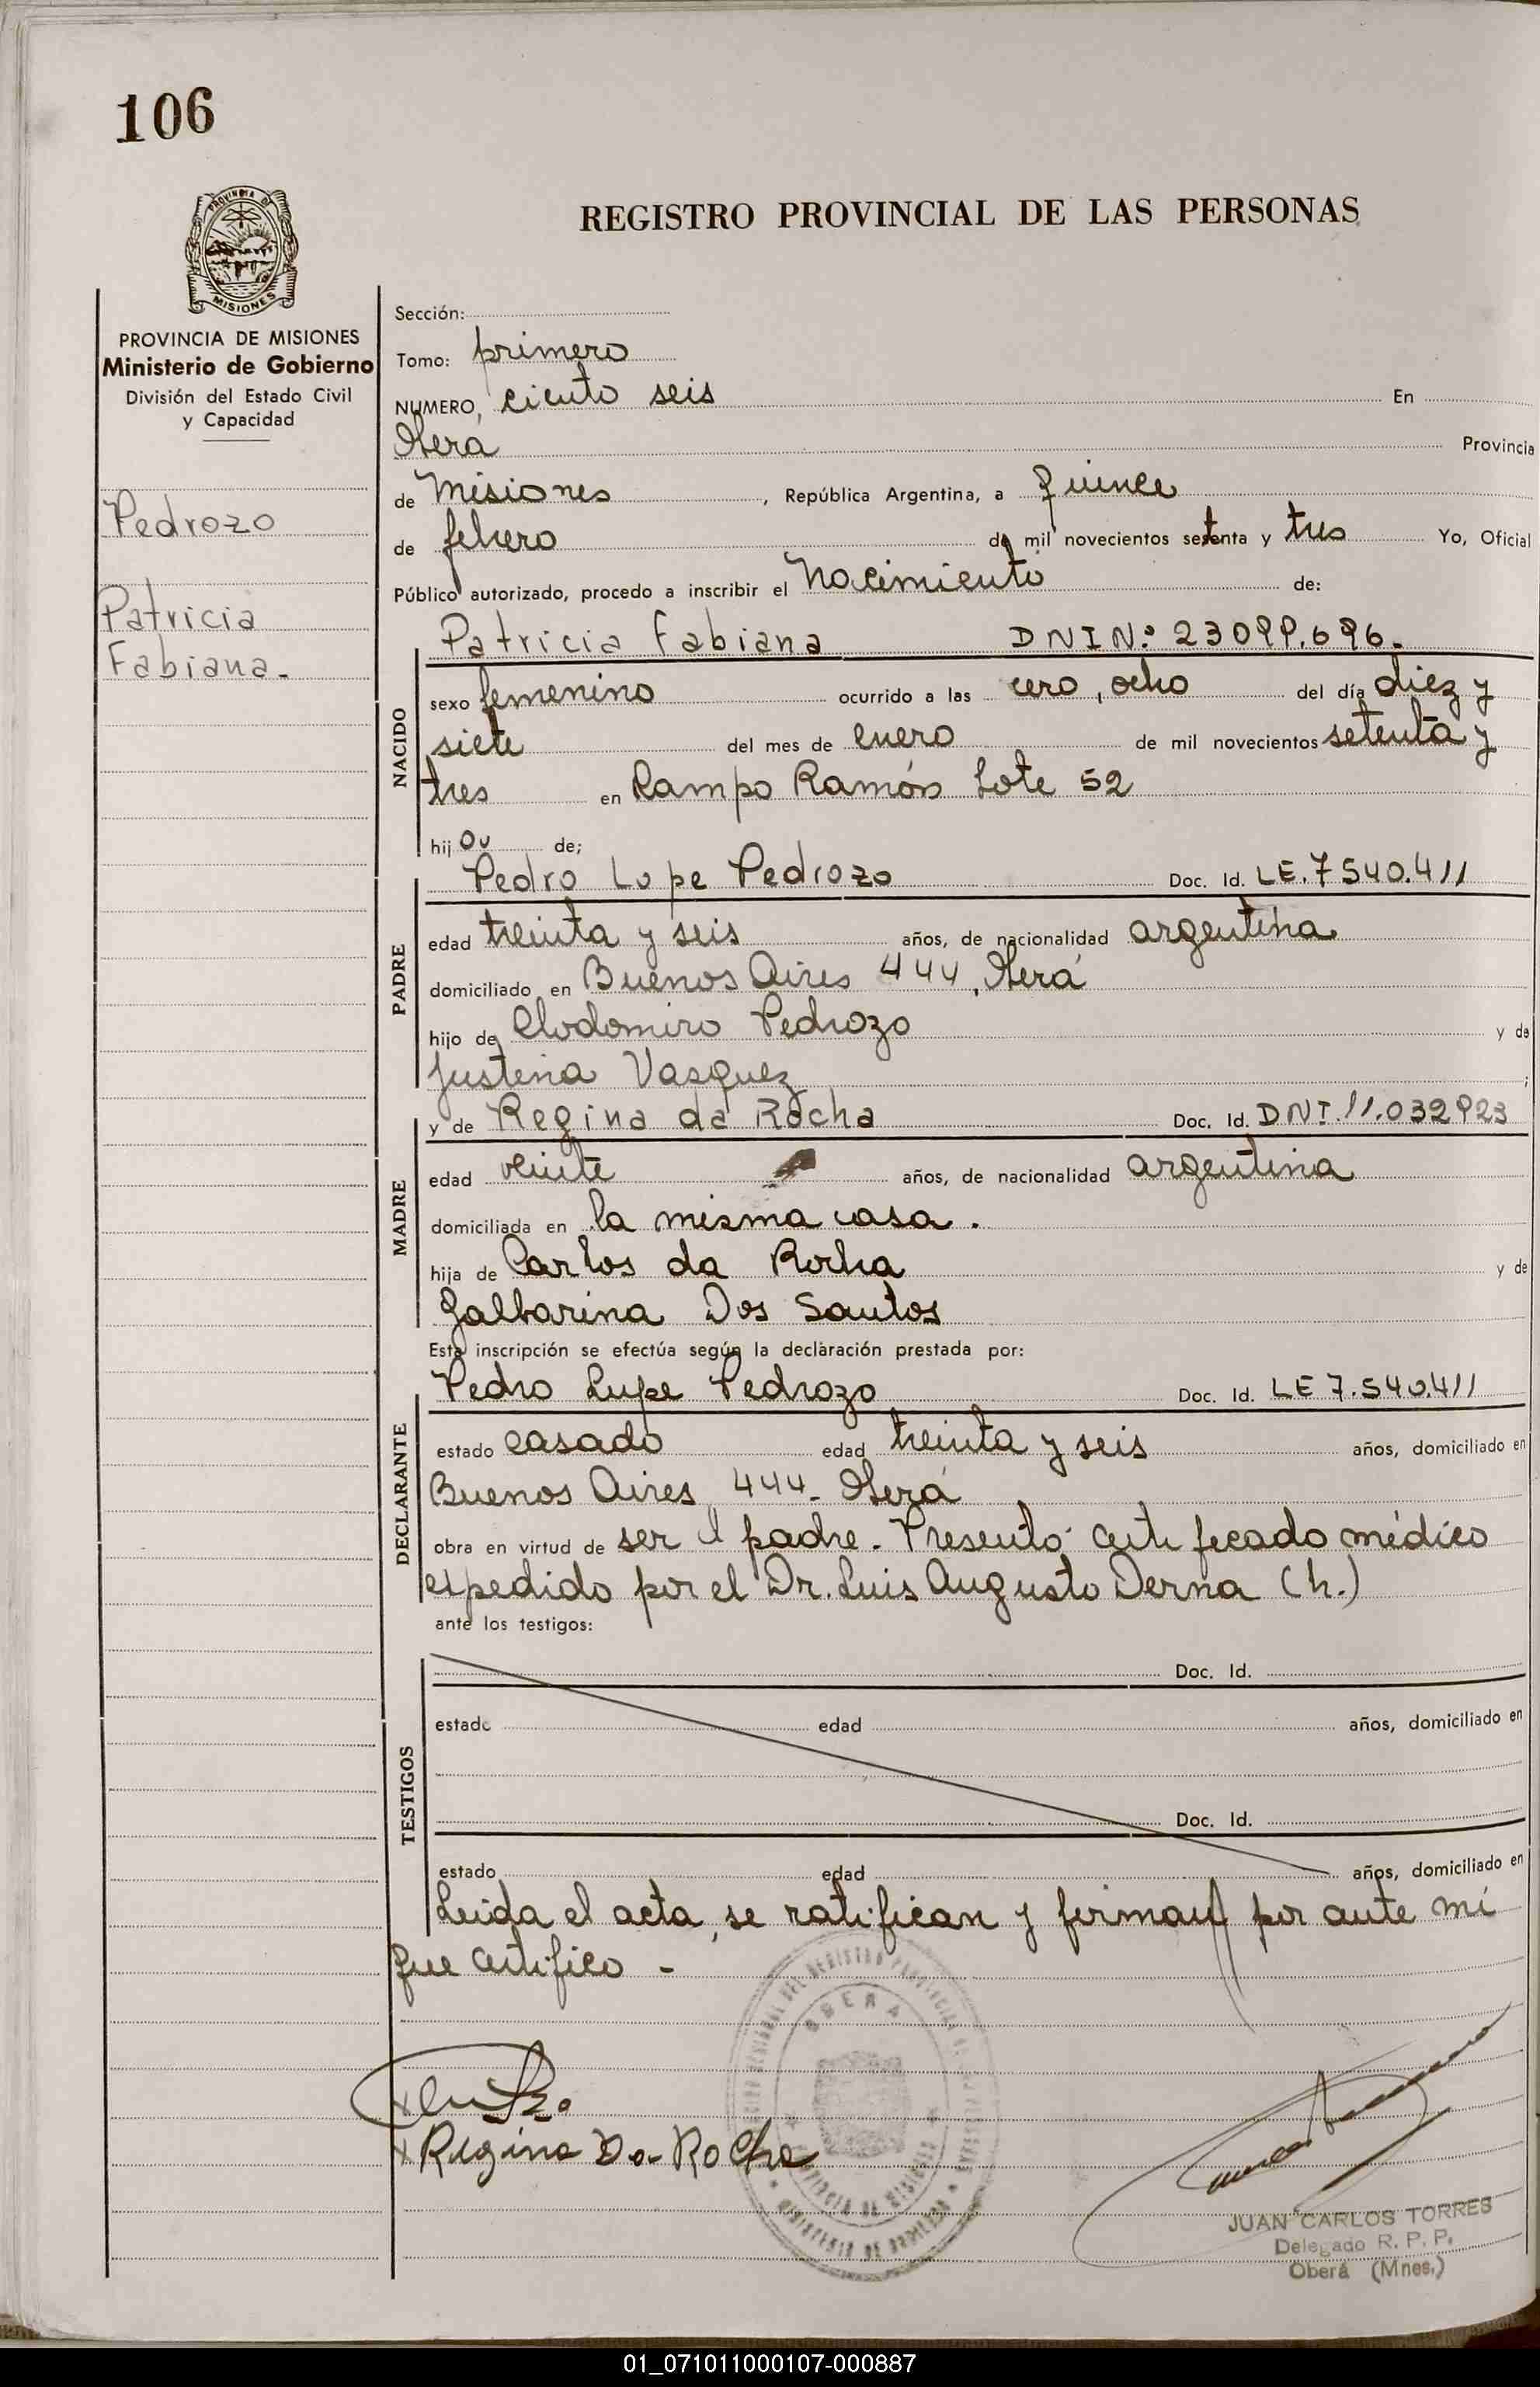 106
PROVINCIA DE
MISIONES
REGISTRO PROVINCIAL DE LAS PERSONAS
PROVINCIA DE MISIONES
Ministerio de Gobierno
División del Estado Civil
y Capacidad
Pedrozo
Patricia
Fabiana.-
Sección:
Tomo: primero
NUMERO, ciento seis En
Oberá Provincia
de Misiones, República Argentina, a quince
de febrero de mil novecientos setenta y tres Yo, Oficial
Público autorizado, procedo a inscribir el Nacimiento de:
NACIDO
Patricia Fabiana DNI Nº 23099.696.
sexo femenino ocurrido a las cero, ocho del día diez y
siete del mes de enero de mil novecientos setenta y
tres en Campo Ramón Lote 52
hij de;
PADRE
Pedro Lupe Pedrozo Doc. Id. LE. 7540.411
edad treinta y seis años, de nacionalidad argentina
domiciliado en Buenos Aires 444, Oberá
hijo de Clodomiro Pedrozo y de
Justina Vasquez ;
MADRE
y de Regina da Rocha Doc. Id. DNI. 11.032923
edad veinte años, de nacionalidad argentina
domiciliada en la misma casa.
hija de Carlos da Rocha y de
Galbarina Dos Santos
Esta inscripción se efectúa según la declaración prestada por:
DECLARANTE
Pedro Lupe Pedrozo Doc. Id. LE 7.540.411
estado casado edad treinta y seis años, domiciliado en
Buenos Aires 444- Oberá
obra en virtud de ser el padre. Presentó certificado médico
expedido por el Dr. Luis Augusto Derna (h.)
ante los testigos:
TESTIGOS
Doc. Id.
estado edad años, domiciliado en
Doc. Id.
estado edad años, domiciliado en
Leida el acta, se ratifican y firman por ante mi
que certifico -
OBERA
PROVINCIA DE MISIONES
Regina Da Rocha
JUAN CARLOS TORRES
Delegado R. P. P.
Oberá (Mnes.)
01_071011000107-000887